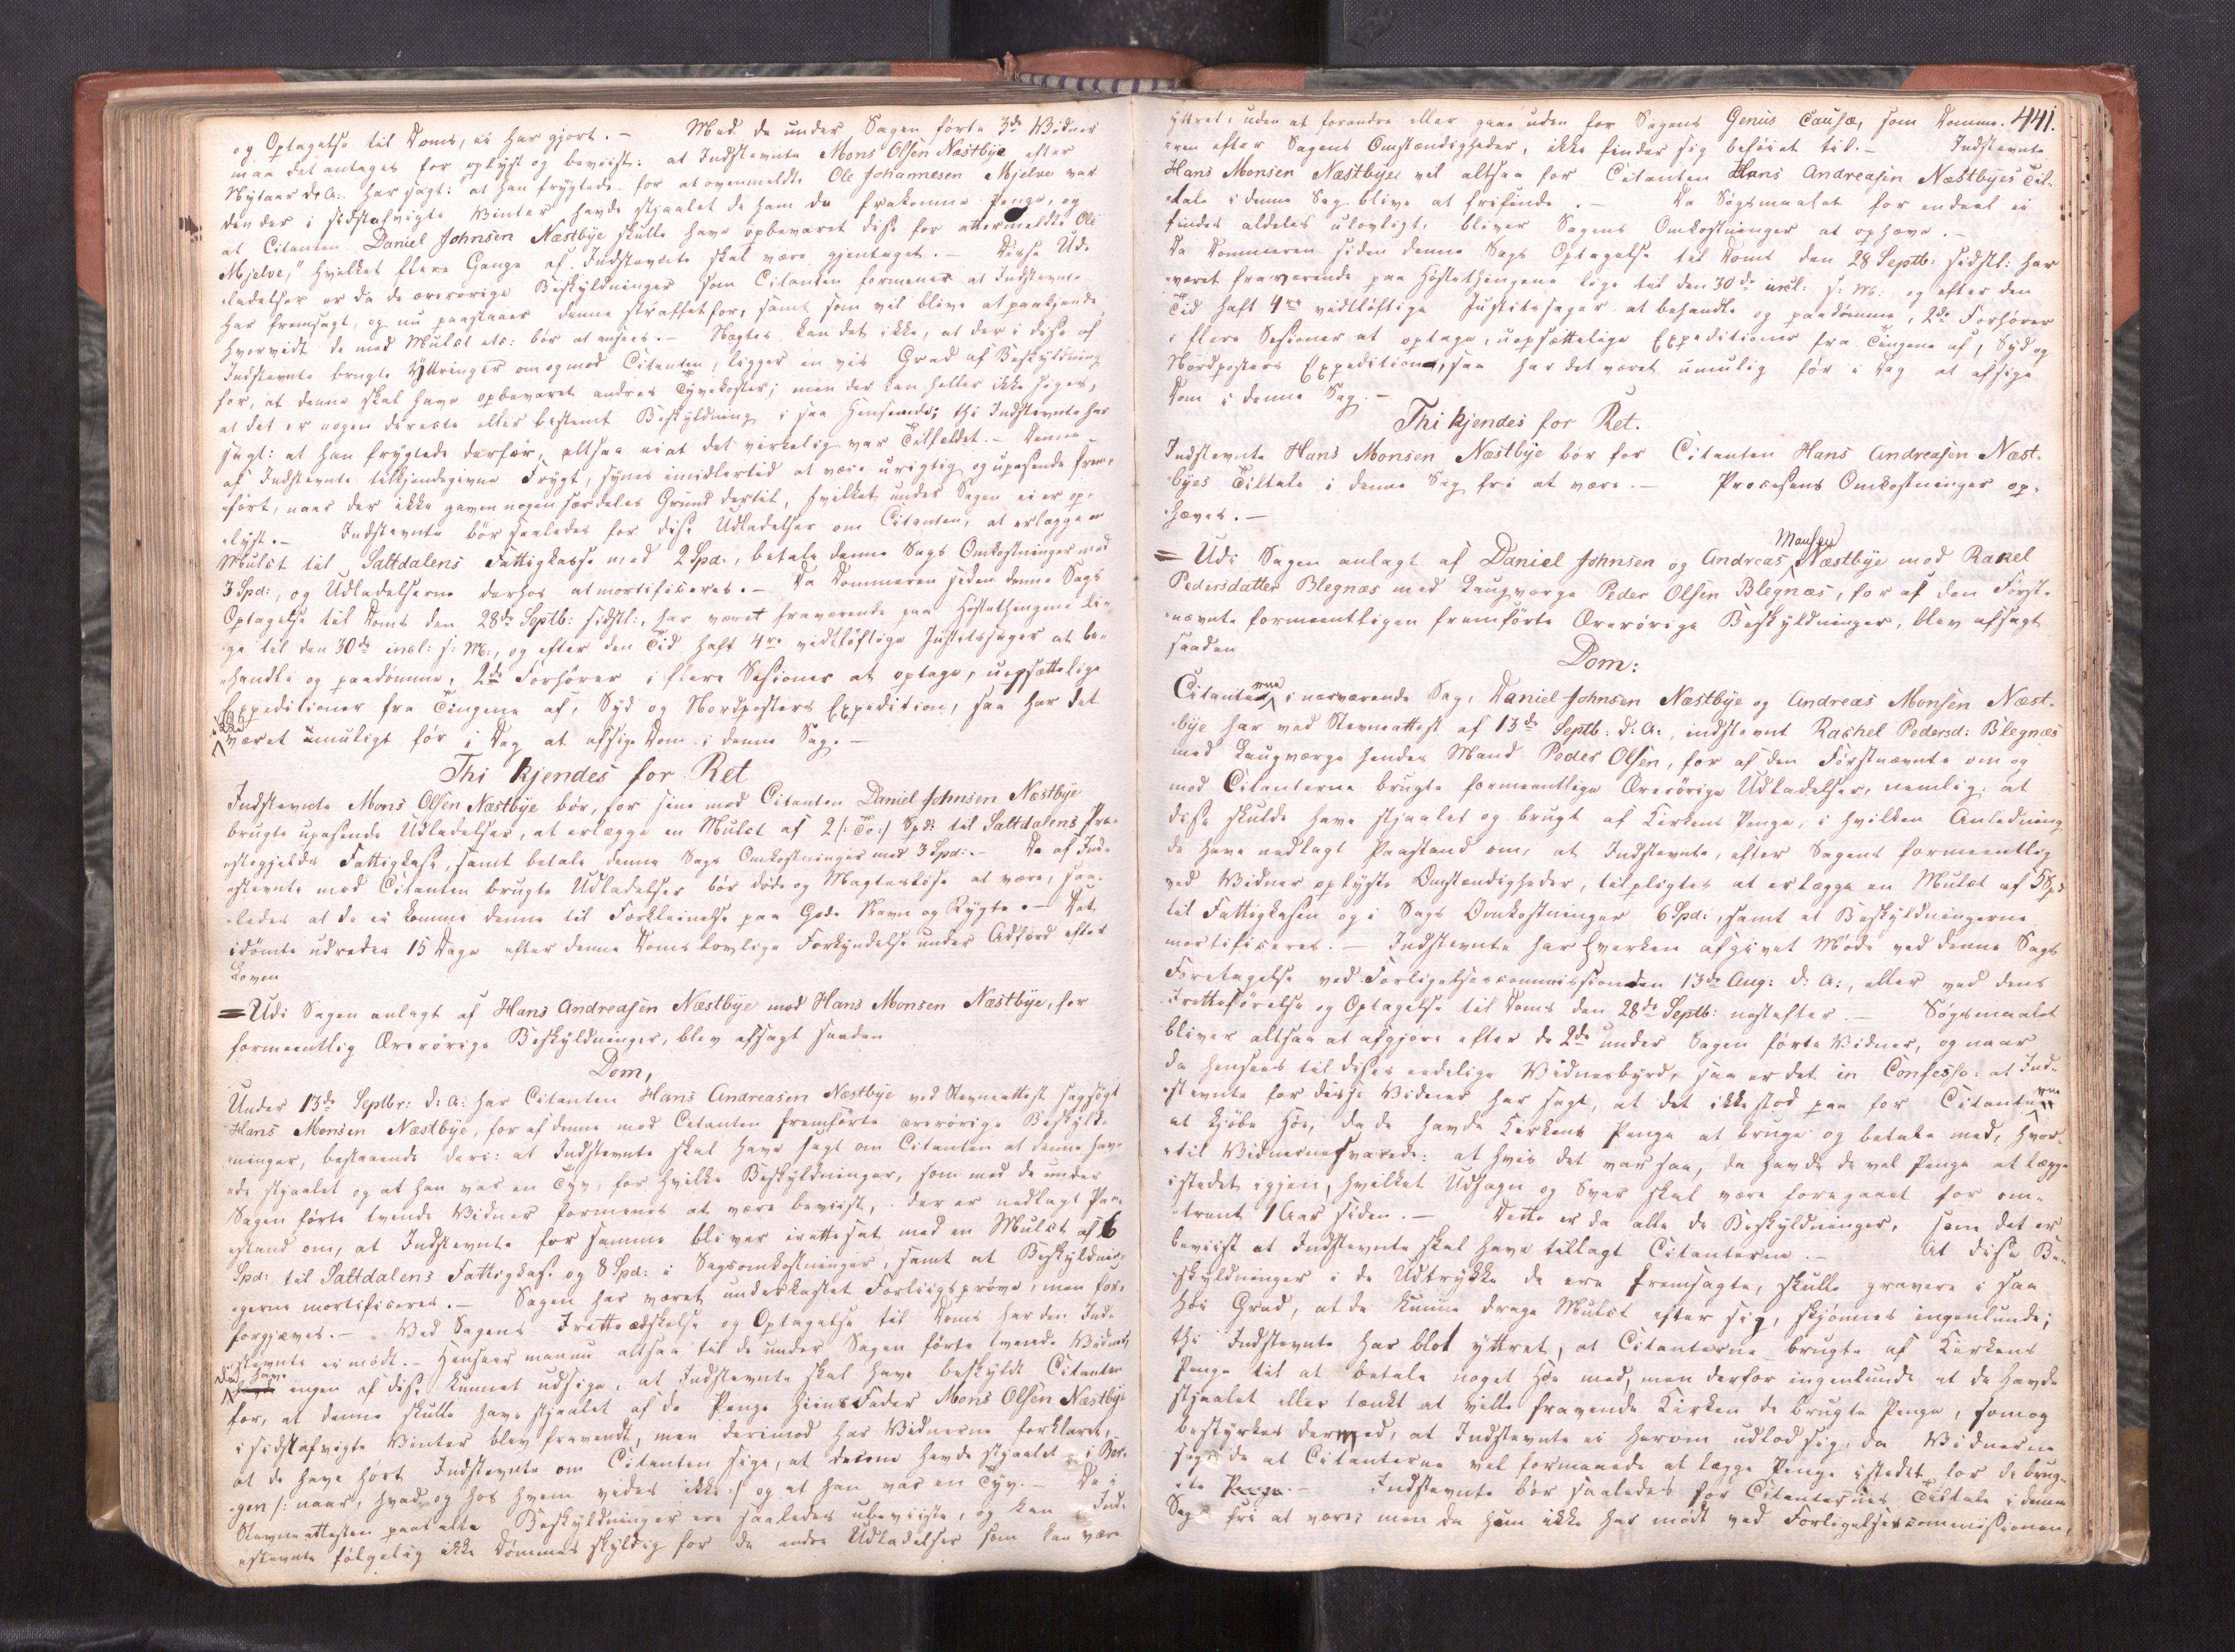 og Optagelse til Doms, ei har gjort. - Med de under Sagen førte 3de Vidner
maa det antages for oplyst og beviist: at Indstevnte Mons Olsen Næstbye efter
Nytaar d: A: har sagt: at han frygtede for at ovenmeldte Ole Johannesen Mjelve var
den der i sidstafvigte Vinter havde stjaalet de ham da frakomne Penge, og
at Citanten Daniel Johnsen Næstbye skulle have opbevaret disse for attermeldte Ole
Mjelve," hvilket flere Gange af Indstevnte skal være gjentaget. - Disse Ud-
ladelser er da de ærerørige Beskyldninger som Citanten formener at Indstevnte
har fremsagt, og nu paastaaer denne straffet for, samt som vil blive at paakjende,
hvorvidt de med Mulct etc: bør at ansees. - Nægtes kan det ikke, at der i disse af
Indstevnte brugte Yttringer om og mod Citanten, ligger en vis Grad af Beskyldning
for, at denne skal have opbevaret andres Tyvekoster; men der kan heller ikke siges,
at det er nogen directe eller bestemt Beskyldning i saa Henseende; thi Indstevnte har
sagt: at han frygtede derfor, altsaa ei at det virkelig var Tilfældet. - Denne
af Indstevnte tilkjendegivne Frygt, synes imidlertid at være urigtig og upassende frem-
ført, naar der ikke gaves nogen særdeles Grund dertil, hvilket under Sagen ei er op-
lyst. - Indstevnte bør saaledes for disse Udladelser om Citanten, at erlægge en
Mulct til Saltdalens Fattigkasse med 2 Spd:, betale denne Sags Omkostninger med
3 Spd:, og Udladelserne derhos at mortificeres. - Da Dommeren siden denne Sags
Optagelse til Doms den 28de Septb: sidstl:, har været fraværende paa Høstethingene li-
ge til den 30de incl: f: M:, og efter den Tid haft 4re vidtløftige Justitssager at be-
handle og paadømme, 2de Forhører i flere Sessioner at optage, uopsættelige
Expeditioner fra Tingene af, Syd og Nordposters Expedition, saa har det
været umuligt før i Dag at afsige Dom i denne Sag. -
Thi kjendes for Ret
Indstevnte Mons Olsen Næstbye bør, for sine mod Citanten Daniel Johnsen Næstbye
brugte upassende Udladelser, at erlægge en Mulct af 2 /: To :/ Spd: til Saltdalens Præ-
stegjelds Fattigkasse, samt betale denne Sags Omkostninger med 3 Spd: - De af Ind-
stevnte mod Citanten brugte Udladelser bør døde og Magtesløse at være, saa-
ledes at de ei komme denne til Forkleinelse paa Gode Navn og Rygte. - Det
idømte udredes 15 Dage efter denne Doms lovlige Forkyndelse under Adfærd efter
Loven
= Udi Sagen anlagt af Hans Andreasen Næstbye mod Hans Monsen Næstbye, for
formeentlig Ærerørige Beskyldninger, blev afsagt saadan
Dom,
Under 13de Septbr: d: A: har Citanten Hans Andreasen Næstbye ved Stevneattest sagsøgt
Hans Monsen Næstbye, for af denne mod Citanten fremførte ærerørige Beskyld-
ninger, bestaaende deri: at Indstevnte skal have sagt om Citanten at denne hav-
de stjaalet og at han var en Tyv, for hvilke Beskyldninger, som med de under
Sagen førte tvende Vidner formenes at være beviist, der er nedlagt Paa-
stand om, at Indstevnte for samme bliver irettesat med en Mulct af 6
Spd: til Saltdalens Fattigkasse og 8 Spd: i Sagsomkostninger, samt at Beskyldnin-
gerne mortificeres. - Sagen har været underkastet Forliigsprøve, men for-
forgjæves. - Ved Sagens Fretteædskelse og Optagelse til Doms har den Ind-
stevnte ei mødt. - Henseer man nu altsaa til de under Sagen førte tvende Vidner,
da have ingen af disse kunnet udsige, at Indstevnte skal have beskyldt Citanten
for, at denne skulle have stjaalet af de Penge hiins Fader Mons Olsen Næstbye
i sidstafvigte Vinter blev fravendt, men derimod har Vidnerne forklaret,
at de have hørt Indstevnte om Citanten sige, at denne havde stjaalet i Ber-
gen /: naar, hvad og hos hvem vides ikke :/ og at han var en Tyv. - De i
Stevneattesten paatalte Beskyldninger ere saaledes ubeviiste, og kan Ind-
stevnte følgelig ikke dømmes skyldig for de andre Udladelser som kan være
441.
yttret, uden at forandre eller gaae uden for Sagens Genus Causæ, som Domme-
ren efter Sagens Omstændigheder, ikke finder sig beføiet til. - Indstevnte
Hans Monsen Næstbyes vil altsaa for Citanten Hans Andreasen Næstbyes Til-
tale i denne Sag blive at frifinde. - Da Søgsmaalet for en deel ei
findes aldeles ulovligt, bliver Sagens Omkostninger at ophæve. -
Da Dommeren siden denne Sags Optagelse til Doms den 28 Septb: sidstl: har
været fraværende paa Høstethingene lige til den 30de incl: f: M: og efter den
Tid haft 4re vidtløftige Justitssager at behandle og paadømme, 2de Forhører
i flere Sessioner at optage, uopsættelige Expeditioner fra Tingene af, Syd og
Nordposters Expedition, saa har det været umulig før i Dag at afsige
Dom i denne Sag. -
Thi kjendes for Ret.
Indstevnte Hans Monsen Næstbye bør for Citanten Hans Andreasen Næst-
byes Tiltale i denne Sag fri at være. - Processens Omkostninger op-
hæves. -
Monsen
= Udi Sagen anlagt af Daniel Johnsen og Andreas Næstbye mod Rakel
Pedersdatter Blegnæs med Laugværge Peder Olsen Blegnæs, for af den Først-
nævnte formeentligen fremførte Ærerørige Beskyldninger, blev afsagt
saadan
Dom:
Citanterne i nærværende Sag, Daniel Johnsen Næstbye og Andreas Monsen Næst-
bye har ved Stevneattest af 13de Septb: d: A:, indstevnt Rachel Pedersd: Blegnæs
med Laugværge hendes Mand Peder Olsen, for af den Førstnævnte om og
mod Citanterne brugte formeentlige Ærerørige Udladelser, nemlig: at
disse skulde have stjaalet og brugt af Kirkens Penge, i hvilken Anledning
de have nedlagt Paastand om, at Indstevnte, efter Sagens formeentlig
ved Vidner oplyste Omstændigheder, tilpligtes at erlægge en Mulct af 5 Spd
til Fattigkassen og i Sags Omkostninger 6 Spd:, samt at Beskyldningerne
mortificeres. - Indstevnte har hverken afgivet Møde ved denne Sags
Foretagelse ved Forligelsescommissionen den 13de Aug: d: A:, eller ved dens
Fretteførelse og Optagelse til Doms den 28de Septb: næstefter. - Søgsmaalet
bliver altsaa at afgjøre efter de 2de under Sagen førte Vidner, og naar
da henseees til disses eedelige Vidnesbyrd, saa er det in Confesso: at Ind-
stevnte for disse Vidner har sagt, at det ikke stod paa for Citanterne
at kjøbe Høe, da de havde Kirkens Penge at bruge og betale med, hvor-
til Vidnerne svarede: at hvis det var saa, da havde de vel Penge at lægge
istedet igjen, hvilket Udsagn og Svar skal være foregaaet for om-
trent 1 Aar siden. - Dette er da alle de Beskyldninger, som det er
beviist at Indstevnte skal have tillagt Citanterne. - At disse Be-
skyldninger i de Udtrykke de ere fremsagte, skulle gravere i saa
høi Grad, at de kunne drage Mulct efter sig, skjønnes ingenlunde;
thi Indstevnte har blot yttret, at Citanterne brugte af Kirkens
Penge til at betale noget Høe med, men derfor ingenlunde at de havde
stjaalet eller tænkt at ville fravende Kirken de brugte Penge, som og
bestyrkes dermed, at Indstevnte ei herom udlod sig, da Vidnerne
sagde at Citanterne vel formaaede at lægge Penge istedet for de brug-
te Penge. - Indstevnte bør saaledes for Citanternes Tiltale i denne
Sag fri at være; men da hun ikke har mødt ved Forligelsescommissionen,